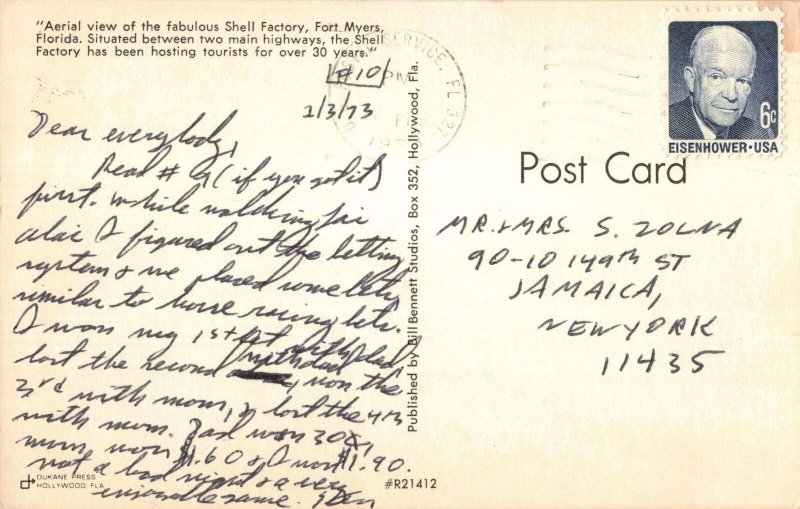 "Aerial view of the fabulous Shell Factory, Fort Myers,
Florida. Situated between two main highways, the Shell
Factory has been hosting tourists for over 30 years."
#10
2/3/73
Dear everybody,
Read #9 (if you got it)
first. While watching jai
alai I figured out the betting
system & we placed some bets
similar to horse racing bets.
I won my 1st bet with dad,
lost the second with dad, won the
3rd with mom, & lost the 4th
with mom. Dad won 30¢,
mom won $1.60 & I won $1.90.
not a bad night & a very
enjoyable game.
DUKANE PRESS
HOLLYWOOD, FLA
Published by Bill Bennett Studios, Box 352, Hollywood, Fla.
#R21412
SERVICE, FL 327
PM
6c
EISENHOWER·USA
Post Card
MR. & MRS. S. ZOLNA
90-10 149th ST
JAMAICA,
NEW YORK
11435